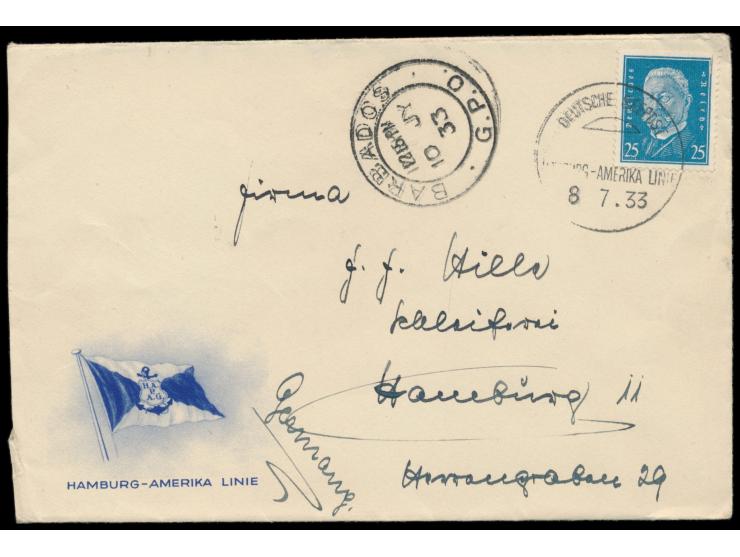 BARBADOS · G.P.O. ·
12 15 PM
10 JY
33
DEUTSCHE
HAMBURG-AMERIKA LINIE
8 7.33
25 25
Firma
J. J. Hills
Schleiferei
Hamburg 11
Herrengraben 29
Germany.
H.A.
P.
A.G.
HAMBURG-AMERIKA LINIE